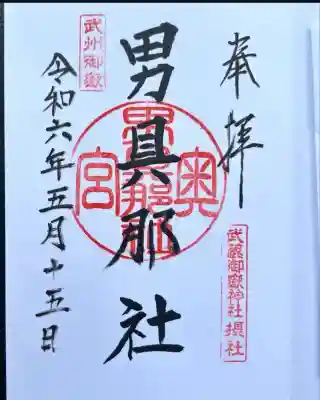 奉拝
武蔵御嶽神社摂社
男具那社
奥宮
武州御嶽
令和六年五月十五日